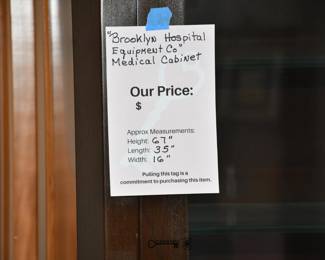 "Brooklyn Hospital
Equipment Co"
Medical Cabinet
Our Price:
$
Approx Measurements:
Height: 67"
Length: 35"
Width: 16"
Pulling this tag is a
commitment to purchasing this item.